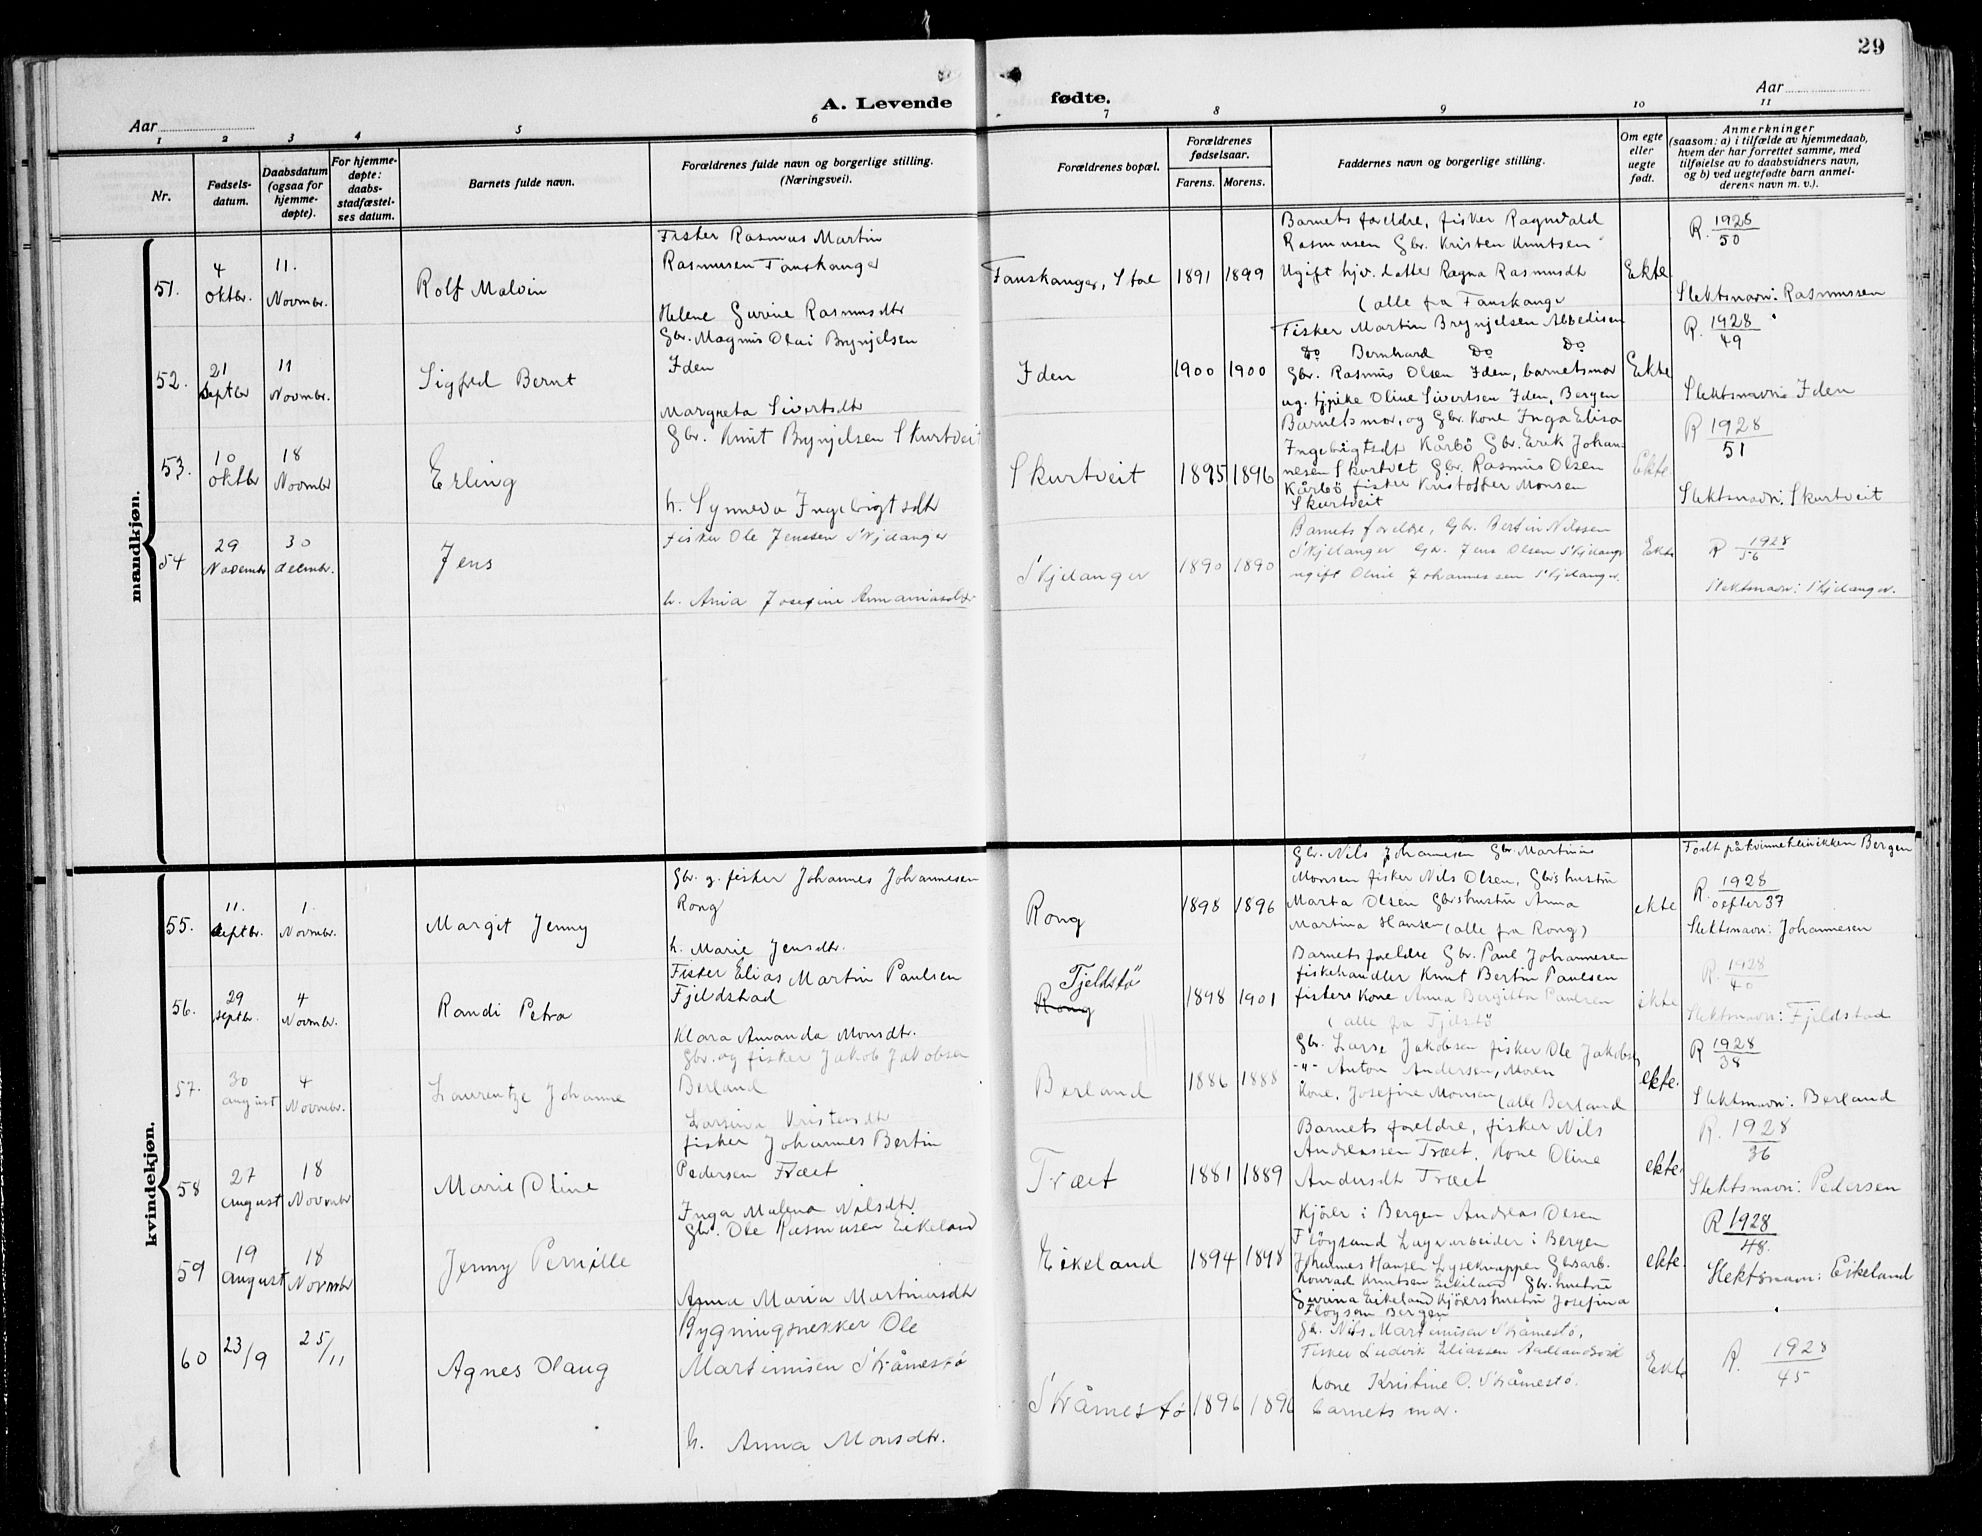 29
A. Levende fødte.
Aar
Aar
1 2 3 4 5 6 7 8 9 10 11
Nr.
Fødsels-
datum.
Daabsdatum
(ogsaa for
hjemme-
døpte).
For hjemme-
døpte:
daabs-
stadfæstel-
ses datum.
Barnets fulde navn.
Forældrenes fulde navn og borgerlige stilling.
(Næringsvei).
Forældrenes bopæl.
Forældrenes
fødselsaar.
Farens. Morens.
Faddernes navn og borgerlige stilling.
Om egte
eller
uegte
født.
Anmerkninger
(saasom: a) i tilfælde av hjemmedaab,
hvem der har forrettet samme, med
tilføielse av to daabsvidners navn,
og b) ved uegtefødte barn anmel-
derens navn m. v.).
mandkjøn.
51.
4
Oktbr.
11.
Novmbr.
Rolf Malvin
Fisker Rasmus Martin
Rasmusen Fanskanger
Helene Gurine Rasmusdtr
Fanskanger, Stol
1891 1899
Barnets foreldre, fisker Ragnvald
Rasmusen Gbr. Kristen Knutsen
Ugift hjv. datter Ragna Rasmusdtr
(alle fra Fanskanger
Ekte
R. 1928
50
Slektsnavn: Rasmussen
52.
21
Septbr
11
Novmbr.
Sigfrd Bernt
Gbr. Magnus Olai Brynjelsen
Iden
Margreta Sivertsdtr
Iden
1900 1900
Fisker Martin Brynjelsen Abbedisen
Do Bernhard Do Do
Gbr. Rasmus Olsen Iden, barnetsmor
ug. pike Oline Sivertsen Iden, Bergen
Ekte
R. 1928
49
Slektsnavn: Iden
53.
10
Oktbr
18
Novmbr
Erling
Gbr. Knut Brynjelsen Skurtveit
h. Synneva Ingebrigtsdtr
Skurtveit
1895 1896
Barnetsmor, og Gbr. kone Inga Elisa
Ingebrigtsdt Kårbö Gbr. Erik Johan-
nesen Skurtvet Gbr. Rasmus Olsen
Kårbö fisker Kristoffer Monsen
Skurtveit
Ekte.
R 1928
51
Slektsnavn: Skurtveit
54
29
Novembr
30
decmbr.
Jens
Fisker Ole Jenssen Skjelanger
h. Ania Josefine Annaniasdtr
Skjelanger
1890 1890
Barnets foreldre, Gbr. Bertin Nilssen
Skjelanger Gbr. Jens Olsen Skjelangr
ugift Oline Johannessen Skjelanger.
Ekte
R 1928
56
Slektsnavn: Skjelanger.
kvindekjøn.
55.
11.
Septbr.
1.
Novmbr.
Margit Jenny
Gbr. g. fisker Johannes Johannesen
Rong
h. Marie Jensdtr.
Rong
1898 1896
Gbr. Nils Johannesen Gbr. Martinus
Monsen fisker Nils Olsen, Gbrshustru
Marta Olsen Gbrshustru Anna
Martina Hansen (alle fra Rong)
ekte
Født på kvinneklinikken Bergen
R. 1928
efter 37
Slektsnavn: Johannesen
56.
29
Septbr.
4
Novmbr.
Randi Petra
Fisker Elias Martin Paulsen
Fjeldstad
Klara Amanda Monsdtr.
Tjeldstö
Rong
1898 1901
Barnets foreldre Gbr. Paul Johannesen
fiskehandler Knut Bertin Paulsen
fisters kone Anna Bergitta Paulsen
(alle fra Tjelstö
ekte
R. 1928
40
Slektsnavn: Fjeldstad
57.
30
august
4
Novmbr.
Laurentze Johanne
Gbr. og fisker Jakob Jakobsen
Berland
Larsina Kristensdtr
Berland
1886 1888
Gbr. Lasse Jakobsen fisker Ole Jakobsen
-"- Anton Andersen, Moren
Kone, Josefine Monsen (alle Berland
ekte.
R 1928
38
Slektsnavn: Berland
58
27
august
18
Novmbr
Marie Oline
fisker Johannes Bertin
Pedersen Træet
Inga Malena Nilsdtr.
Træet
1881 1889
Barnets foreldre, fisker Nils
Andreassen Træet, Kone Oline
Andersdt Træet
ekte.
R. 1928
36
Slektsnavn: Pedersen
59
19
august
18
Novmbr
Jenny Pernille
Gbr. Ole Rasmusen Eikeland
Anna Maria Martinusdtr
Eikeland
1894 1898
Kjörer i Bergen Andreas Olsen
Flöysand Lagerarbeider i Bergen
Johannes Hansen Lyseknappen Gbrsarb.
Konrad Knutsen Eikeland Gbr. hustru
Gurina Eikeland Kjörershustru Josefina
Flöysan Bergen
ekte.
R 1928
48.
Slektsnavn: Eikeland
60
23/9
25/11
Agnes Olaug
Bygningsnekker Ole
Martinusen Skråmestø
h. Anna Monsdtr.
Skråmestø
1896 1896
Gb. Nils Martinusen Skråmestø,
Fisker Ludvik Eliassen Aadlandsvik
Kone Kristine O. Skråmestø.
barnets mor.
Ekte
R. 1928
45